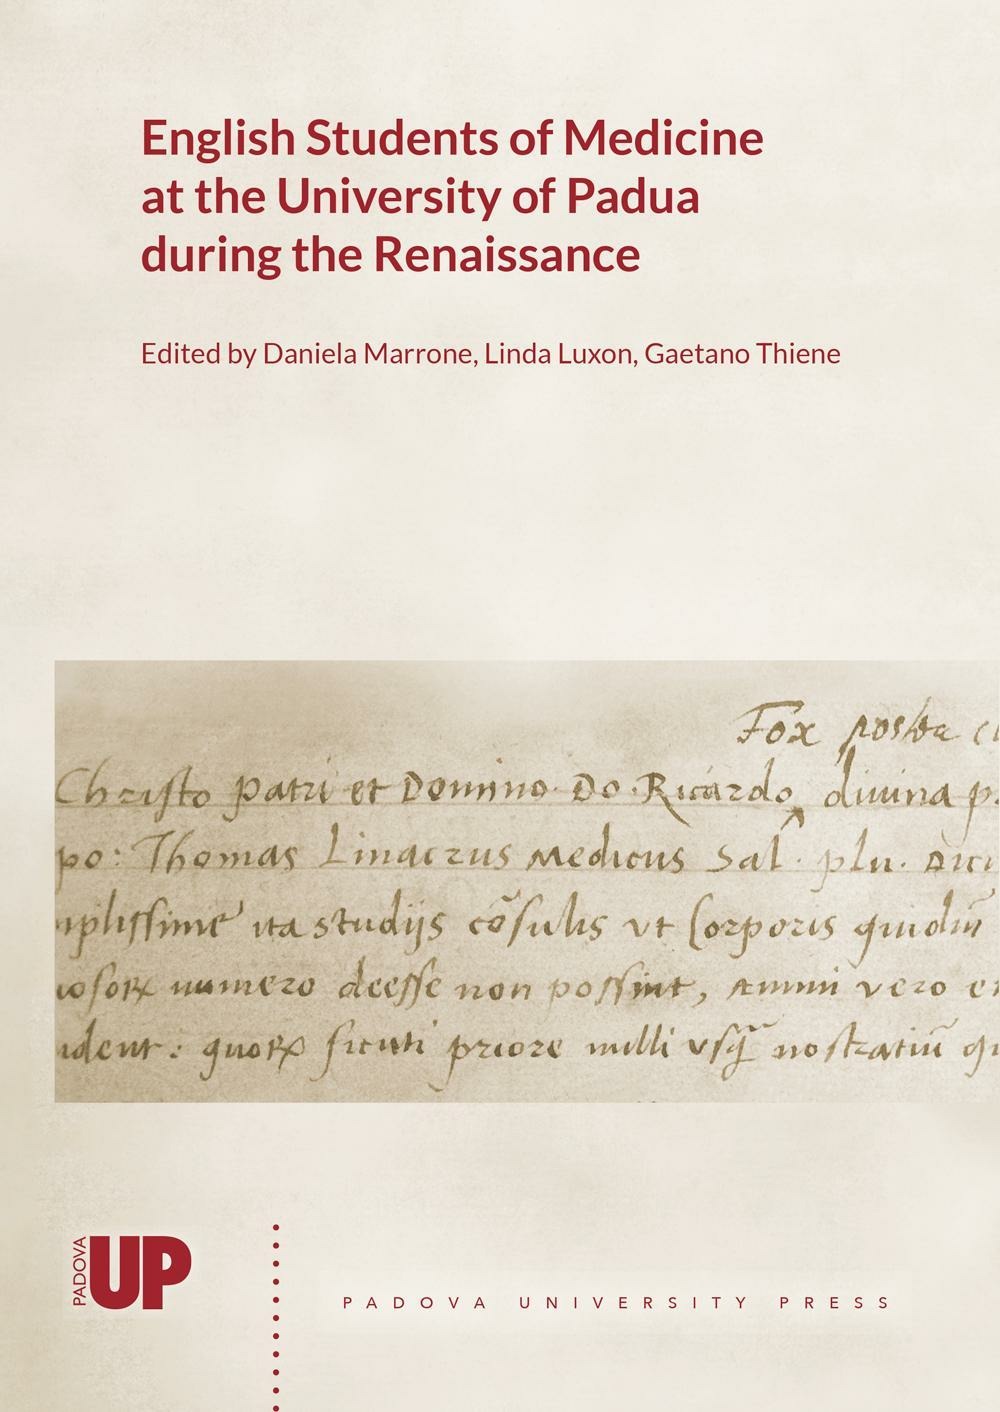 English Students of Medicine
at the University of Padua
during the Renaissance
Edited by Daniela Marrone, Linda Luxon, Gaetano Thiene
Fox
Christo patri et Domino Do. Ricardo divina
po: Thomas Linacrus Medicus Sal. plu.
ita studijs cōsulis vt Corporis
numero deesse non possint, animi vero
priore nulli nostratiū
PADOVA
UP
PADOVA UNIVERSITY PRESS